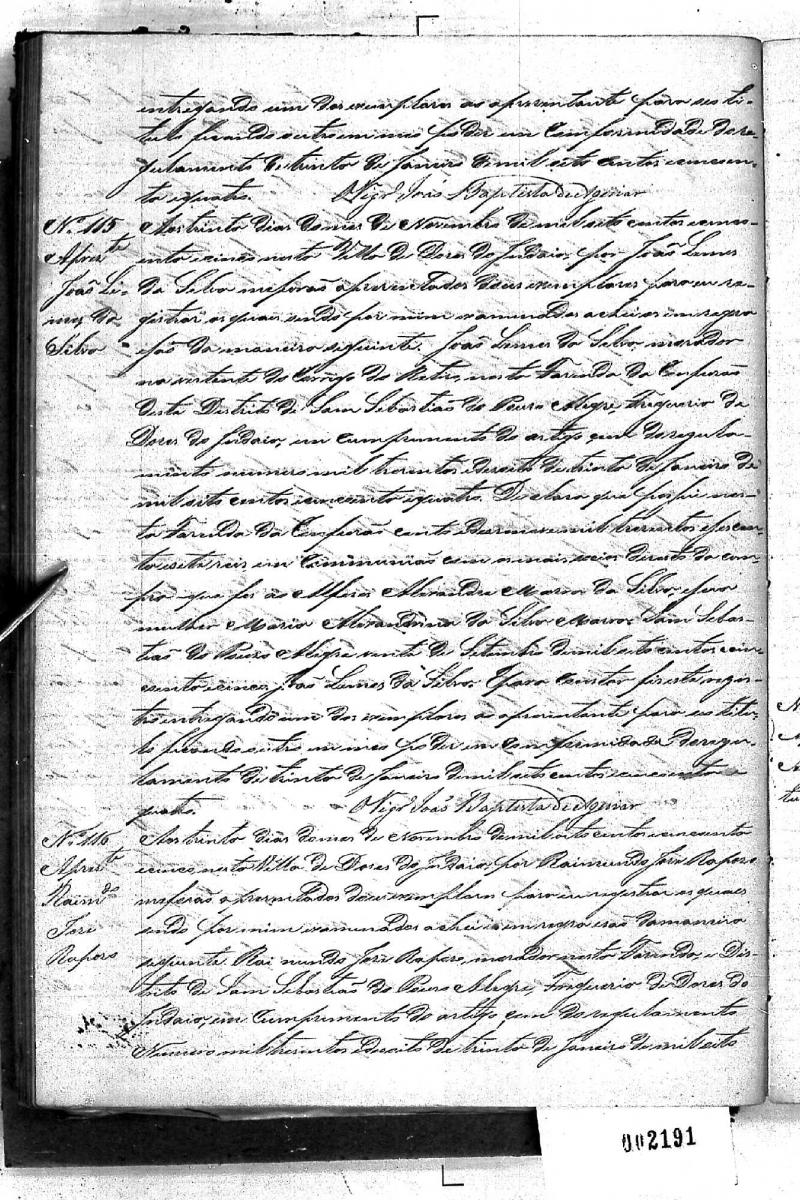 entregando um dos exemplares ao aprezentante para seu ti-
tulo ficando outro em meo poder em Comformidade do re-
gulamento de trinta de Janeiro de mil oito centos e cincoen-
ta e quatro. O Vigr.º João Baptista de Aguiar
Nº 115
Aprez.te
João Le-
mos da
Silva
Aos trinta dias do mes de Novembro de mil oito centos e cinco-
enta e cinco nesta Villa de Dores do Indaia, por João Lemos
da Silva me forão aprezentados dous exemplares para eu re-
gistrar os quais sendo por mim examinados achei os em regra
e são da maneira seguinte. João Lemos da Silva, morador
na vertente do Corrigo do Retiro, nesta Fazenda da Conferão
deste Districto de Sam Sebastião do Pouzo Alegre, Freguezia de
Dores do Indaia, em cumprimento do artigo cem do regula-
mento numero mil trezentos e dezoito de trinta de Janeiro de
mil oito centos e cincoenta e quatro. Declara que possui nes-
ta Fazenda da Conferão cento e dezanove mil trezentos e secen-
ta e sete reis em Communião com os mais socios desta da com-
pra que fes ao Alferes Alexandre Marra da Silva, e sua
mulher Maria Alexandrina da Silva Marra. Sam Sebas-
tião do Pouzo Alegre vinte de Setembro de mil oito centos e cin-
coenta e cinco. João Lemos da Silva. E para constar fis este regis-
tro entregando um dos exemplares ao aprezentante para seo titu-
lo ficando outro em meo poder em comformidade do regu-
lamento de trinta de Janeiro de mil oito centos e cincoenta e
quatro. O Vigr.º João Baptista de Aguiar
Nº 116
Aprez.te
Raim.do
Joze
Rapozo
Aos trinta dias do mes de Novembro de mil oito centos e cincoenta
e cinco nesta Villa de Dores do Indaia, por Raimundo Joze Rapozo
me forão aprezentados dous exemplares para eu registrar os quais
sendo por mim examinados achei os em regra e são da maneira
seguinte. Raimundo Joze Rapozo, morador nesta Fazenda, e Dis-
tricto de Sam Sebastião do Pouzo Alegre, Freguezia de Dores do
Indaia, em Cumprimento do artigo cem do regulamento
Numero mil trezentos e dezoito de trinta de Janeiro de mil oito
002191